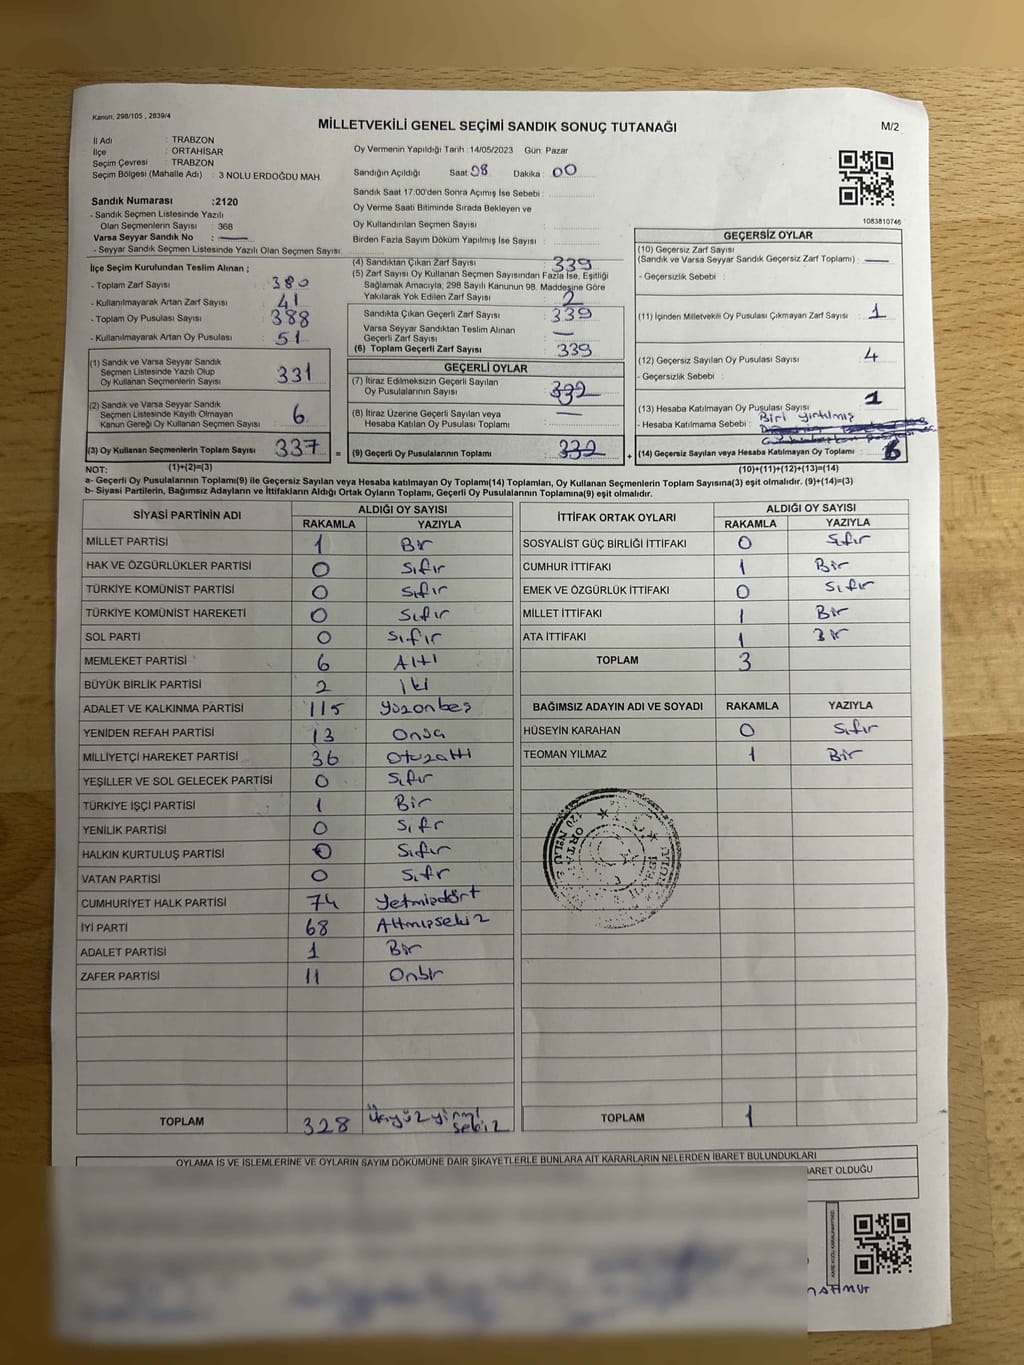 Kanun; 298/105 , 2839/4
MİLLETVEKİLİ GENEL SEÇİMİ SANDIK SONUÇ TUTANAĞI
M/2
İl Adı : TRABZON
İlçe : ORTAHİSAR
Seçim Çevresi : TRABZON
Seçim Bölgesi (Mahalle Adı) : 3 NOLU ERDOĞDU MAH.
Sandık Numarası :2120
- Sandık Seçmen Listesinde Yazılı
Olan Seçmenlerin Sayısı : 368
Varsa Seyyar Sandık No :
- Seyyar Sandık Seçmen Listesinde Yazılı Olan Seçmen Sayısı:
Oy Vermenin Yapıldığı Tarih :14/05/2023 Gün: Pazar
Sandığın Açıldığı Saat: 08 Dakika: 00
Sandık Saat 17:00'den Sonra Açılmış İse Sebebi :
Oy Verme Saati Bitiminde Sırada Bekleyen ve
Oy Kullandırılan Seçmen Sayısı :
Birden Fazla Sayım Döküm Yapılmış İse Sayısı :
1083810746
İlçe Seçim Kurulundan Teslim Alınan ;
- Toplam Zarf Sayısı : 380
- Kullanılmayarak Artan Zarf Sayısı : 41
- Toplam Oy Pusulası Sayısı : 388
- Kullanılmayarak Artan Oy Pusulası : 51
(1) Sandık ve Varsa Seyyar Sandık
Seçmen Listesinde Yazılı Olup
Oy Kullanan Seçmenlerin Sayısı : 331
(2) Sandık ve Varsa Seyyar Sandık
Seçmen Listesinde Kayıtlı Olmayan
Kanun Gereği Oy Kullanan Seçmen Sayısı : 6
(3) Oy Kullanan Seçmenlerin Toplam Sayısı : 337 =
(4) Sandıktan Çıkan Zarf Sayısı : 339
(5) Zarf Sayısı Oy Kullanan Seçmen Sayısından Fazla İse, Eşitliği
Sağlamak Amacıyla; 298 Sayılı Kanunun 98. Maddesine Göre
Yakılarak Yok Edilen Zarf Sayısı : 2
Sandıkta Çıkan Geçerli Zarf Sayısı : 339
Varsa Seyyar Sandıktan Teslim Alınan
Geçerli Zarf Sayısı :
(6) Toplam Geçerli Zarf Sayısı : 339
GEÇERLİ OYLAR
(7) İtiraz Edilmeksizin Geçerli Sayılan
Oy Pusulalarının Sayısı : 332
(8) İtiraz Üzerine Geçerli Sayılan veya
Hesaba Katılan Oy Pusulası Toplamı :
(9) Geçerli Oy Pusulalarının Toplamı : 332 +
GEÇERSİZ OYLAR
(10) Geçersiz Zarf Sayısı
(Sandık ve Varsa Seyyar Sandık Geçersiz Zarf Toplamı) :
- Geçersizlik Sebebi :
(11) İçinden Milletvekili Oy Pusulası Çıkmayan Zarf Sayısı : 1
(12) Geçersiz Sayılan Oy Pusulası Sayısı : 4
- Geçersizlik Sebebi :
(13) Hesaba Katılmayan Oy Pusulası Sayısı : 1
- Hesaba Katılmama Sebebi : Biri yırtılmış
(14) Geçersiz Sayılan veya Hesaba Katılmayan Oy Toplamı :
NOT: (1)+(2)=(3) (10)+(11)+(12)+(13)=(14)
a- Geçerli Oy Pusulalarının Toplamı(9) ile Geçersiz Sayılan veya Hesaba Katılmayan Oy Toplamı(14) Toplamları, Oy Kullanan Seçmenlerin Toplam Sayısına(3) eşit olmalıdır. (9)+(14)=(3)
b- Siyasi Partilerin, Bağımsız Adayların ve İttifakların Aldığı Ortak Oyların Toplamı, Geçerli Oy Pusulalarının Toplamına(9) eşit olmalıdır.
SİYASİ PARTİNİN ADI ALDIĞI OY SAYISI
RAKAMLA YAZIYLA
MİLLET PARTİSİ 1 Bir
HAK VE ÖZGÜRLÜKLER PARTİSİ 0 Sıfır
TÜRKİYE KOMÜNİST PARTİSİ 0 Sıfır
TÜRKİYE KOMÜNİST HAREKETİ 0 Sıfır
SOL PARTİ 0 Sıfır
MEMLEKET PARTİSİ 6 Altı
BÜYÜK BİRLİK PARTİSİ 2 iki
ADALET VE KALKINMA PARTİSİ 115 yüzonbeş
YENİDEN REFAH PARTİSİ 13 Onüç
MİLLİYETÇİ HAREKET PARTİSİ 36 Otuzaltı
YEŞİLLER VE SOL GELECEK PARTİSİ 0 Sıfır
TÜRKİYE İŞÇİ PARTİSİ 1 Bir
YENİLİK PARTİSİ 0 Sıfır
HALKIN KURTULUŞ PARTİSİ 0 Sıfır
VATAN PARTİSİ 0 Sıfır
CUMHURİYET HALK PARTİSİ 74 Yetmişdört
İYİ PARTİ 68 Altmışsekiz
ADALET PARTİSİ 1 Bir
ZAFER PARTİSİ 11 Onbir
TOPLAM 328 Üçyüzyirmi
sekiz
İTTİFAK ORTAK OYLARI ALDIĞI OY SAYISI
RAKAMLA YAZIYLA
SOSYALİST GÜÇ BİRLİĞİ İTTİFAKI 0 Sıfır
CUMHUR İTTİFAKI 1 Bir
EMEK VE ÖZGÜRLÜK İTTİFAKI 0 Sıfır
MİLLET İTTİFAKI 1 Bir
ATA İTTİFAKI 1 Bir
TOPLAM 3
BAĞIMSIZ ADAYIN ADI VE SOYADI RAKAMLA YAZIYLA
HÜSEYİN KARAHAN 0 Sıfır
TEOMAN YILMAZ 1 Bir
TOPLAM 1
OYLAMA İŞ VE İŞLEMLERİNE VE OYLARIN SAYIM DÖKÜMÜNE DAİR ŞİKAYETLERLE BUNLARA AİT KARARLARIN NELERDEN İBARET BULUNDUKLARI
BARET OLDUĞU